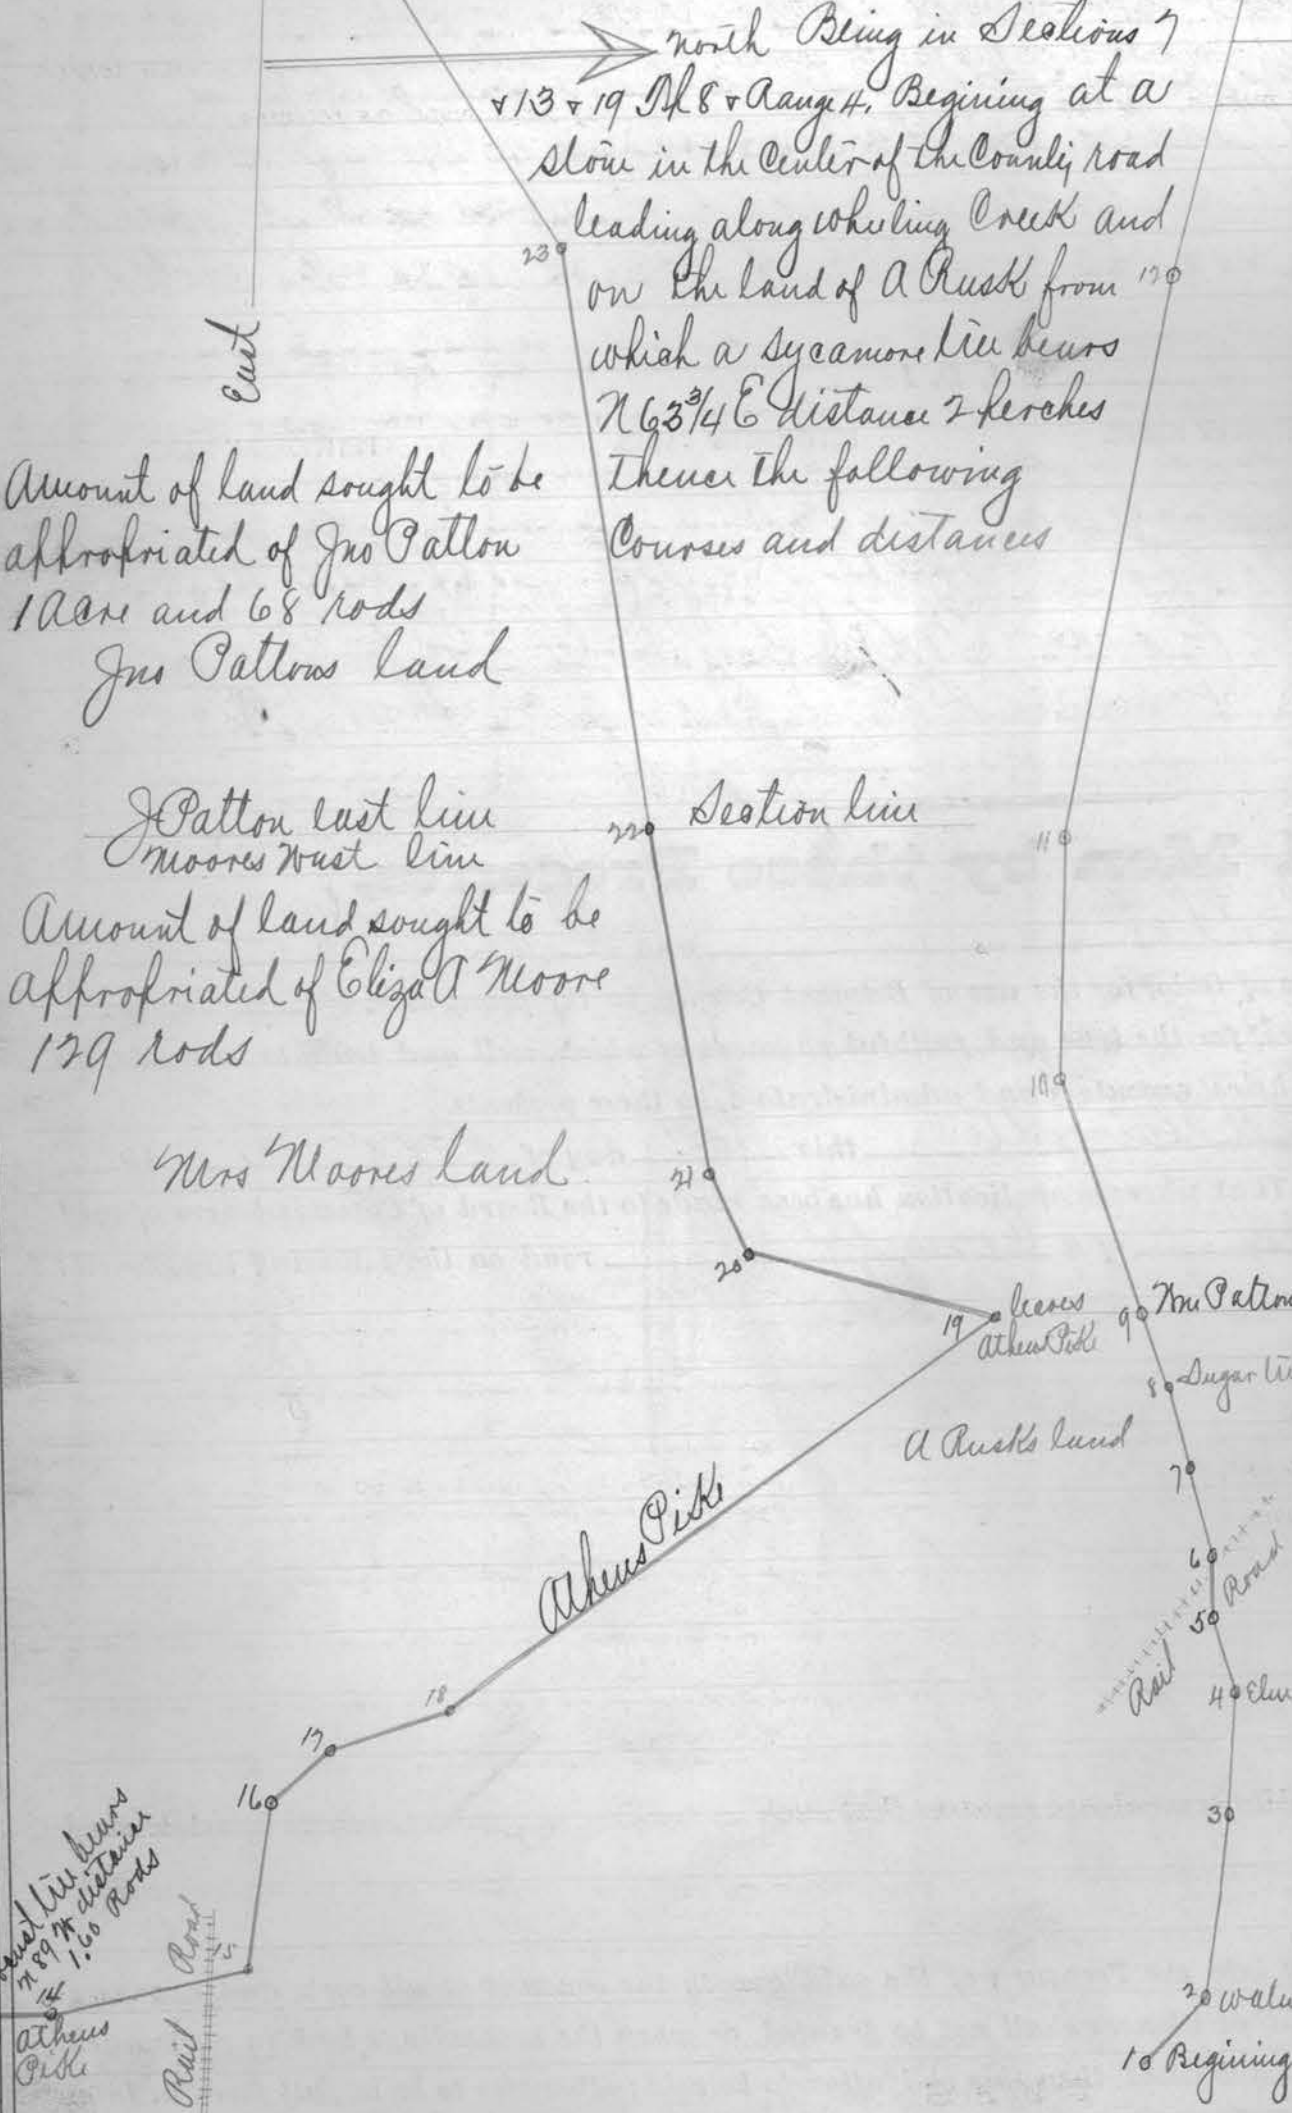 North Being in Sections 7
& 13 & 19 T 8 & Range 4. Begining at a
stone in the Center of the County road
leading along Wheeling Creek and
on the land of A Rusk from
which a Sycamore tree bears
N 63 3/4 E distance 2 perches
thence the following
Courses and distances
East
23
12
Amount of land sought to be
appropriated of Jno Patton
1 Acre and 68 rods
Jno Pattons land
J Patton east line
Moores West line
22
Section line
11
Amount of land sought to be
appropriated of Eliza A Moore
129 rods
10
Mrs Moores land
21
20
19
leaves
Athens Pike
9
Wm Patton
8
Sugar
A Rusks land
7
Athens Pike
6
5
Rail Road
4
Elm
18
17
16
3
tree bears
N 89 W distance
1.60 Rods
14
15
Athens
Pike
Rail Road
2
1
Begining